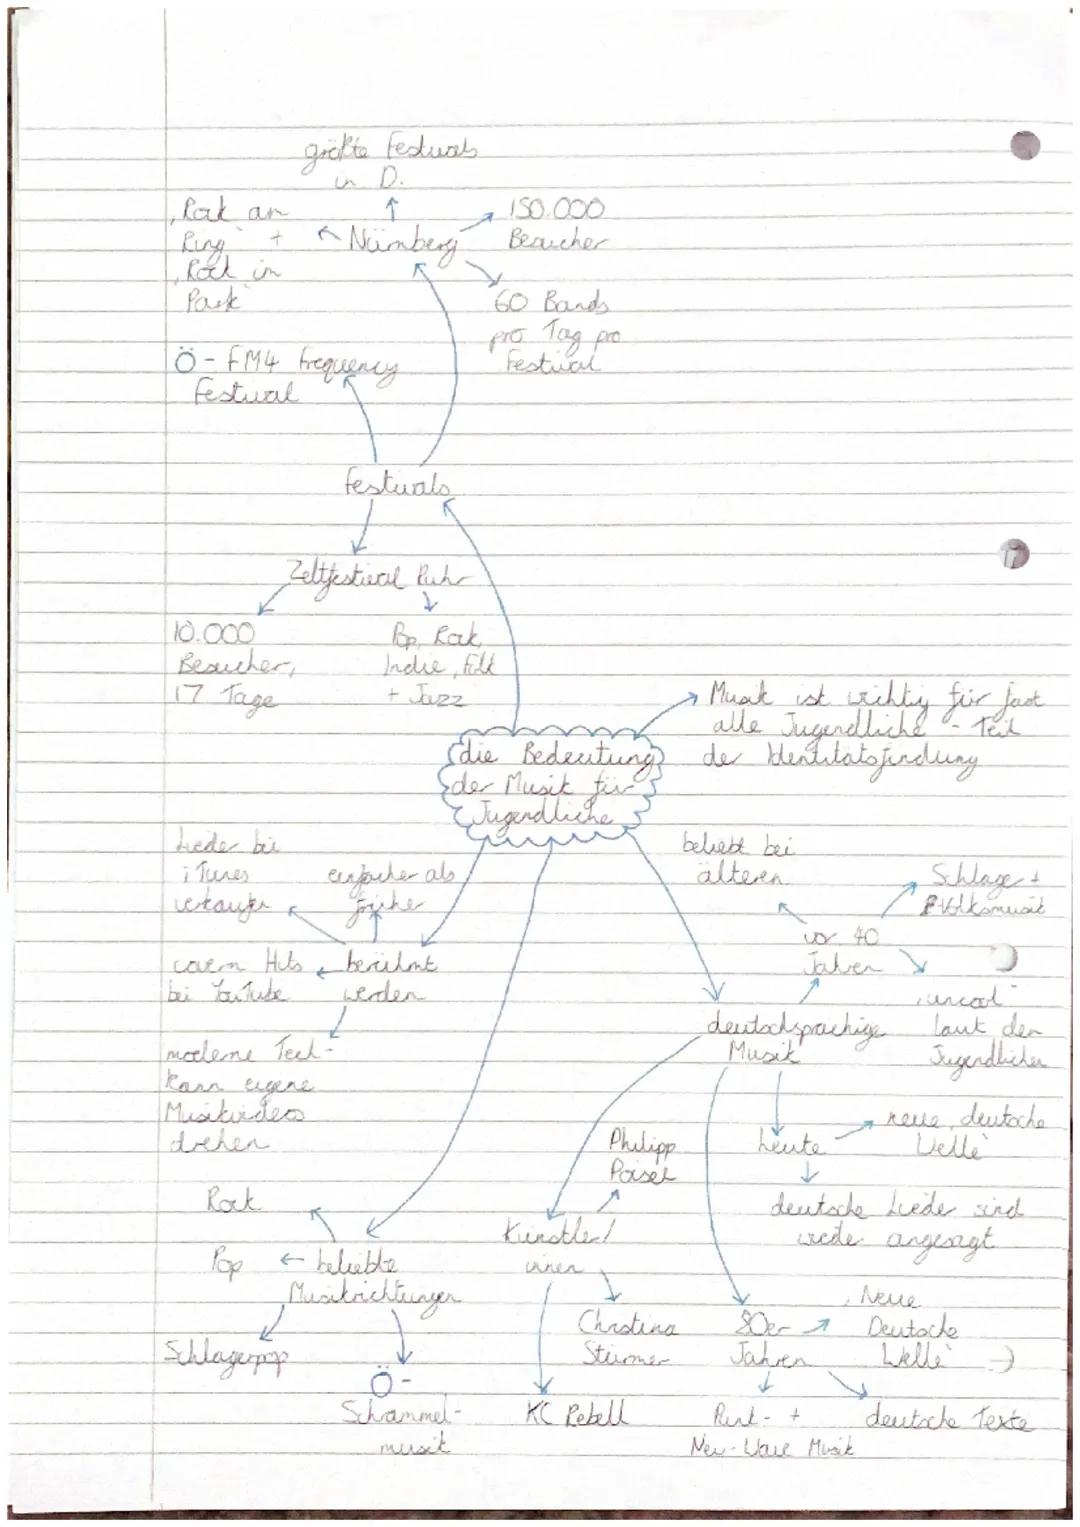 größte Festivals
in D.
‚Rock am
Ring‘ +
‚Rock im
Park‘
Nürnberg
150.000
Besucher
60 Bands
pro Tag pro
Festival
Ö - FM4 Frequency
Festival
Festivals
Zeltfestival Ruhr
10.000
Besucher,
17 Tage
Pop, Rock,
Indie, Folk
+ Jazz
Musik ist wichtig für fast
alle Jugendliche - Teil
der Identitätsfindung
die Bedeutung
der Musik für
Jugendliche
Lieder bei
iTunes
verkaufen
einfacher als
früher
covern Hits
bei YouTube
berühmt
werden
moderne Tech-
kann eigene
Musikvideos
drehen
beliebt bei
älteren
Schlager +
Volksmusik
vor 40
Jahren
‚uncool‘
laut den
Jugendlichen
deutschsprachige
Musik
heute
neue ‚deutsche
Welle‘
deutsche Lieder sind
wieder angesagt
Philipp
Poisel
Künstler/
innen
Christina
Stürmer
KC Rebell
80er
Jahren
‚Neue
Deutsche
Welle‘
Punk- +
New-Wave Musik
deutsche Texte
Rock
Pop
beliebte
Musikrichtungen
Schlagerpop
Ö -
Schrammel-
musik